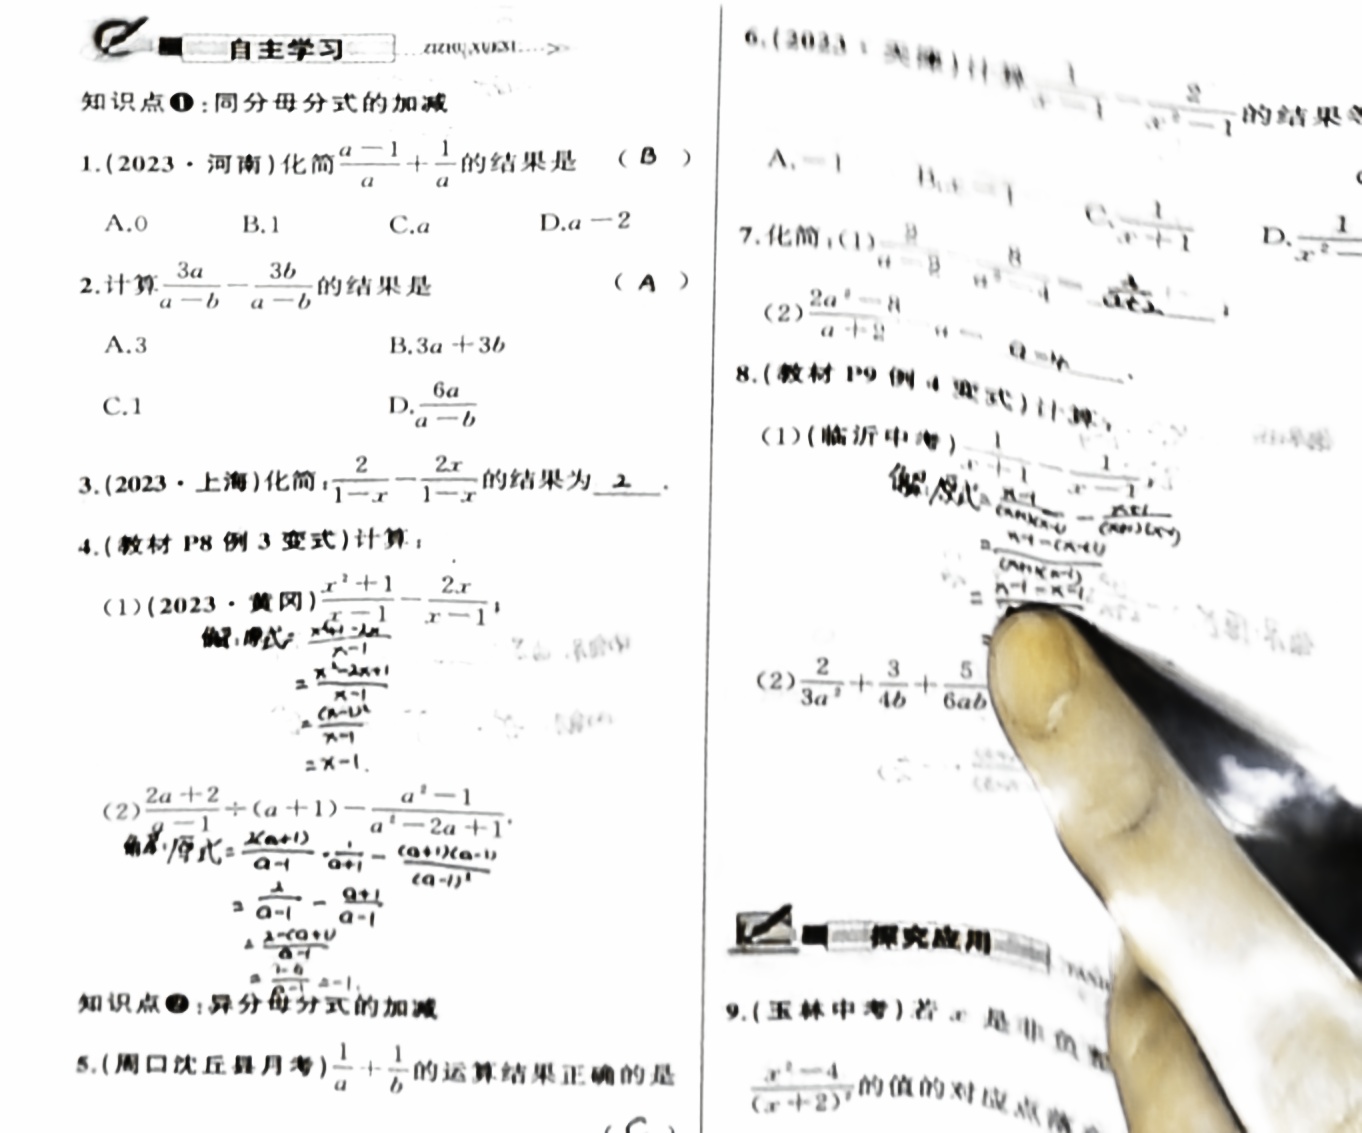 自主学习
知识点❶:同分母分式的加减
1.(2023·河南)化简 (a-1)/a + 1/a 的结果是 ( B )
A.0 B.1 C.a D.a-2
2.计算 3a/(a-b) - 3b/(a-b) 的结果是 ( A )
A.3 B.3a+3b
C.1 D. 6a/(a-b)
3.(2023·上海)化简: 2/(1-x) - 2x/(1-x) 的结果为 2 .
4.(教材 P8 例 3 变式)计算:
(1)(2023·黄冈) (x²+1)/(x-1) - 2x/(x-1);
解:原式= (x²+1-2x)/(x-1)
= (x²-2x+1)/(x-1)
= (x-1)²/(x-1)
= x-1.
(2) (2a+2)/(a-1) ÷(a+1)- (a²-1)/(a²-2a+1).
解:原式= 2(a+1)/(a-1) · 1/(a+1) - (a+1)(a-1)/(a-1)²
= 2/(a-1) - (a+1)/(a-1)
= (2-(a+1))/(a-1)
= (1-a)/(a-1) = -1.
知识点❷:异分母分式的加减
5.(周口沈丘县月考) 1/a + 1/b 的运算结果正确的是
( C )
6.(2023·天津)计算 1/(x-1) - 2/(x²-1) 的结果等
A.-1 B.x-1 C. 1/(x+1) D. 1/(x²-
7.化简:(1)
(2) (2a²-8)/(a+2)
8.(教材 P9 例 4 变式)计算:
(1)(临沂中考) 1/(x+1) - 1/(x-1);
解:原式= (x-1)/(x+1)(x-1) - (x+1)/(x+1)(x-1)
= (x-1-(x+1))/(x+1)(x-1)
= x-1-x-1
=
(2) 2/3a² + 3/4b + 5/6ab
探究应用
9.(玉林中考)若 x 是非负整
(x²-4)/(x+2)² 的值的对应点落